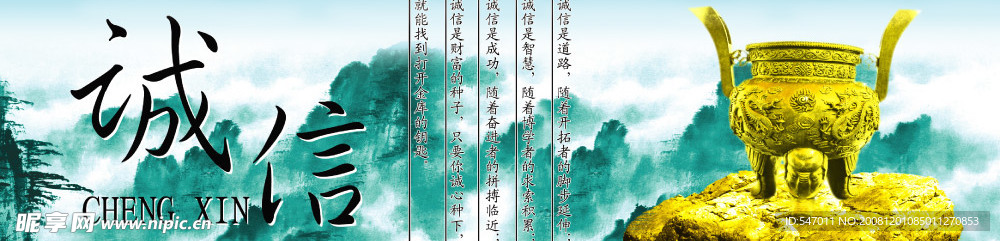 诚信
CHENG XIN
诚信是道路，随着开拓者的脚步延伸；
诚信是智慧，随着博学者的求索积累；
诚信是成功，随着奋进者的拼搏临近；
诚信是财富的种子，只要你诚心种下，
就能找到打开金库的钥匙。
昵享网 www.nipic.cn
ID:547011 NO:20081201085011270853